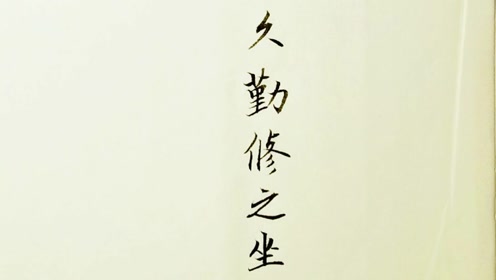 久勤修之坐